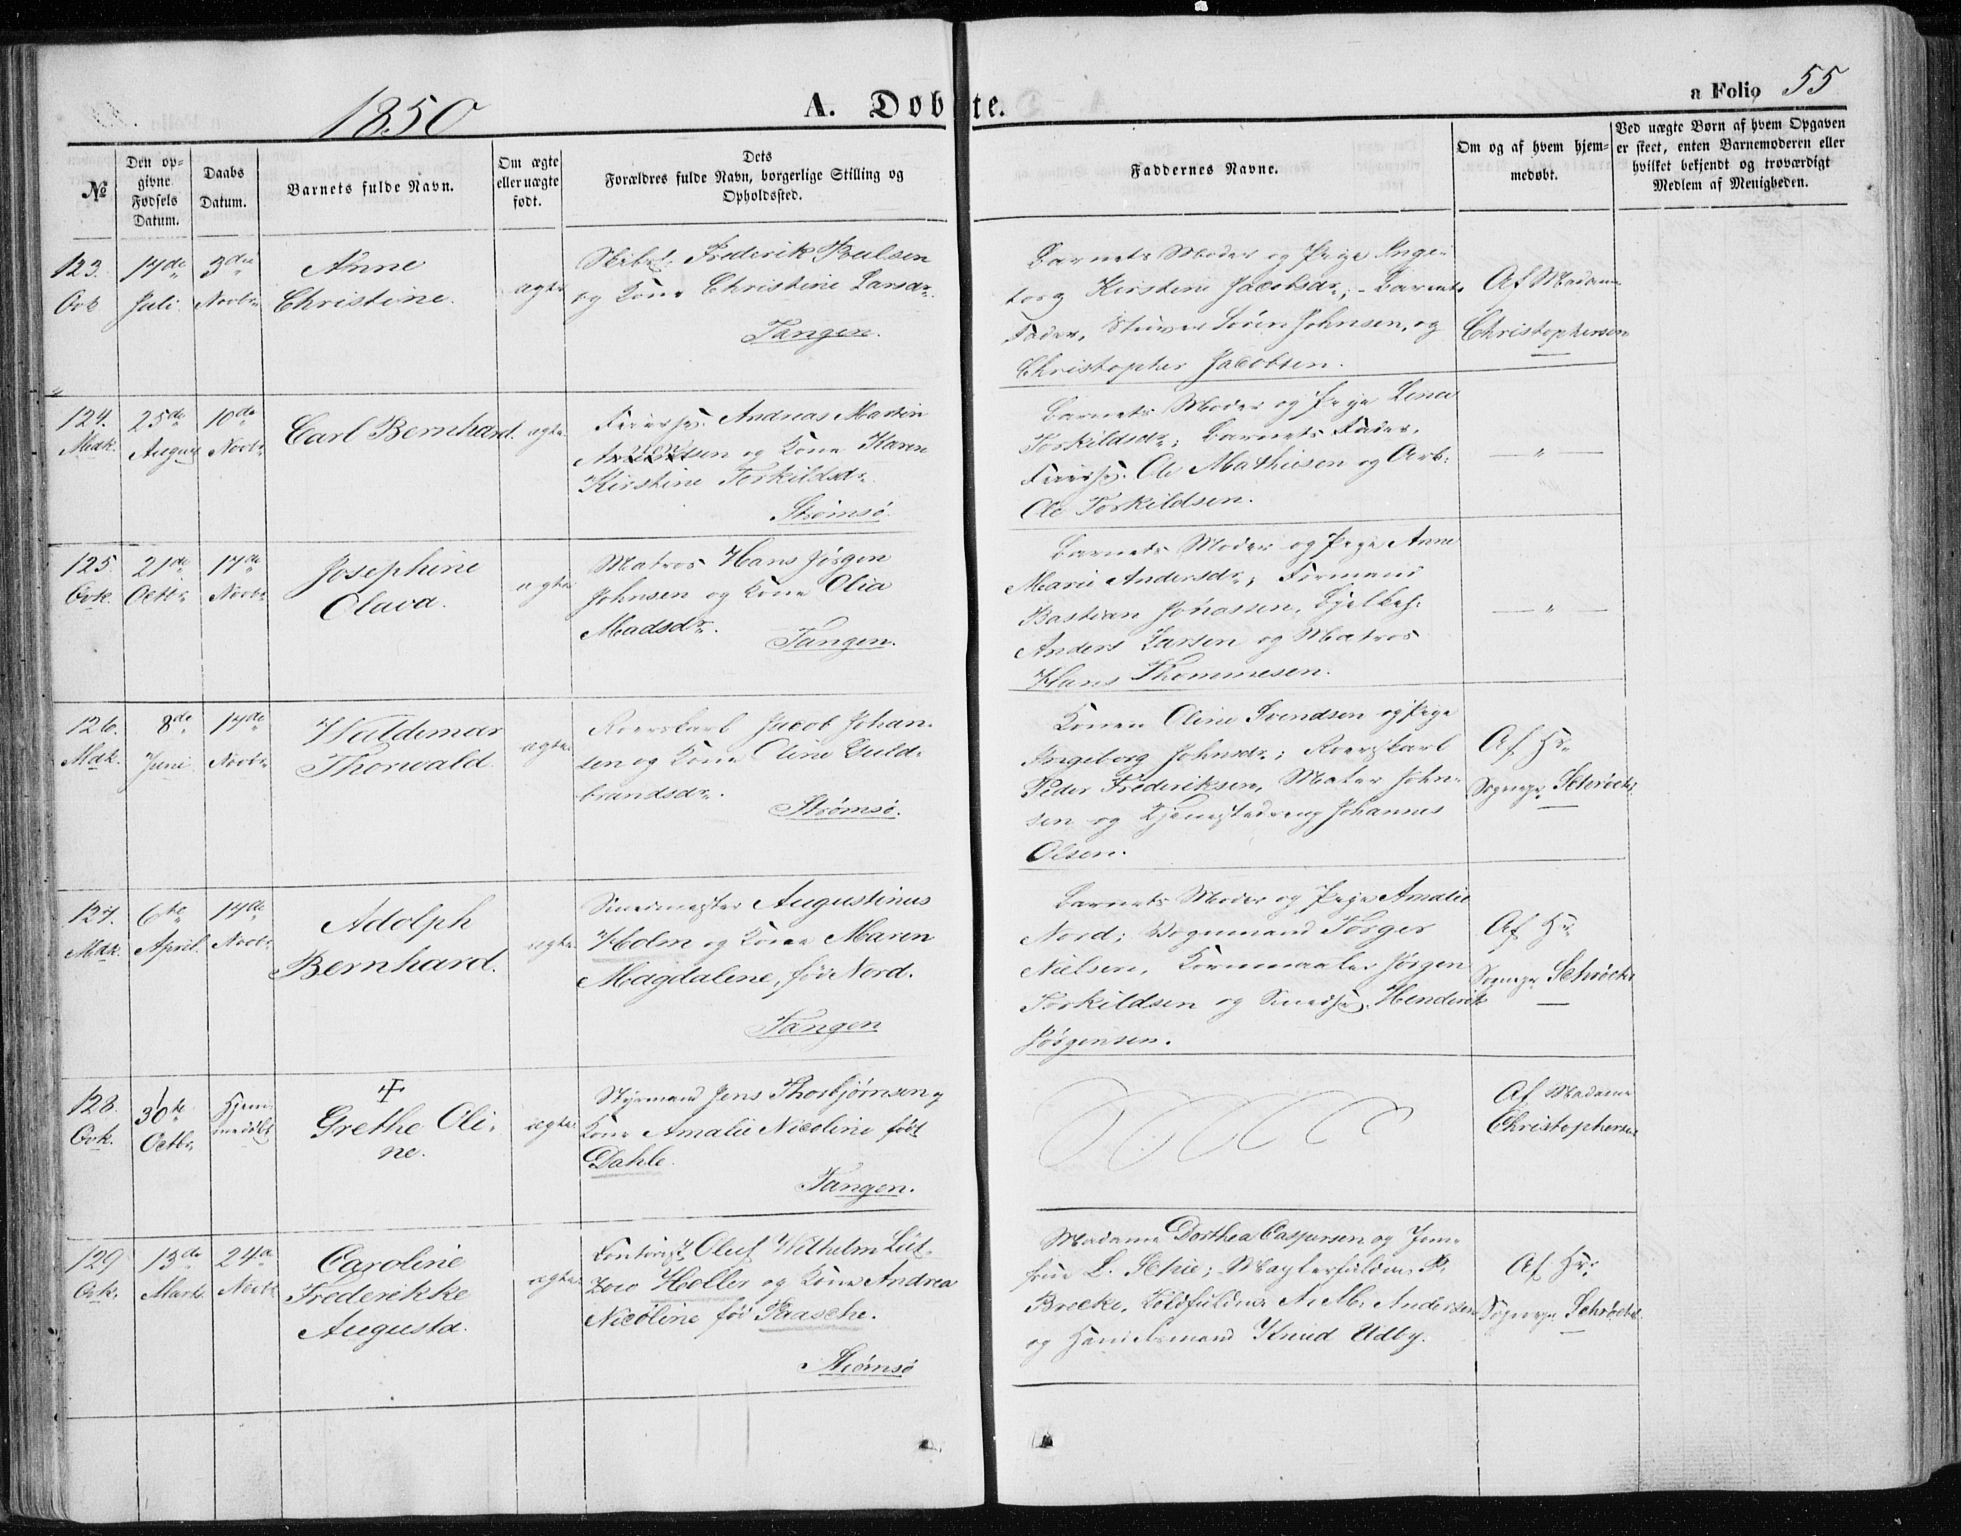 1850
A. Døbte.
a Folio 55
№
Den op=
givne
Fødsels
Datum.
Daabs
Datum.
Barnets fulde Navn.
Om ægte
eller uægte
født.
Dets
Forældres fulde Navn, borgerlige Stilling og
Opholdssted.
Faddernes Navne.
Om og af hvem hjem=
medøbt.
Ved uægte Børn af hvem Opgaven
er skeet, enten Barnemoderen eller
hvilket bekjendt og troværdigt
Medlem af Menigheden.
123.
Qvk
17de
Juli
3die
Novbr
Anne
Christine.
ægte
Frederik Paulsen
og Kone Christine Larsdr.
Tangen.
Barnets Moder og Pige Inge-
borg Kirstine Jacobsdr; Barnets
Fader, Stuver Søren Johnsen, og
Christopher Jacobsen.
Af Madame
Christophersen
124.
Mdk.
25de
August
10de
Novbr
Carl Bernhard.
ægte
Andreas Martin
og Kone Karen
Kirstine Torkildsdr.
Strømsø
Barnets Moder og Pige Lena
Torkildsdr; Barnets Fader,
Ole Mathisen og Arb.
Ole Torkildsen.
— " —
125.
Qvk.
21de
Octbr
17de
Novbr
Josephine
Olava.
ægte
Matros Hans Jørgen
Johnsen og Kone Olia
Madsdr.
Tangen.
Barnets Moder og Pige Anne
Marie Andersdr; Formand
Bastian Jonassen,
Anders Larsen og Matros
Hans Thommesen.
— " —
126.
Mdk.
8de
Juni
17de
Novbr
Waldemar
Thorwald
ægte
Roerskarl Jacob Johan-
sen og Kone Oline Guld-
brandsdr.
Strømsø.
Konen Oline Svendsen og Pige
Ingeborg Johnsdr; Roerskarl
Peder Frederiksen, Maler John-
sen og Tjenestedreng Johannes
Olsen.
Af Hr
Sognepr. Schrøder
127.
Mdk.
6te
April.
17de
Novbr
Adolph
Bernhard.
ægte
Smedmester Augustinus
Holm og Kone Maren
Magdalene, fød Nord.
Tangen
Barnets Moder og Pige Amalie
Nord; Vognmand Torger
Nielsen, Kornmaaler Jørgen
Torkildsen og Smedsv. Henderik
Jørgensen.
Af Hr
Sognepr. Schrøder
128.
Qvk.
30te
Octbr
Hjem-
medøbt
Grethe Oli-
ne.
ægte
Styrmand Jens Thorbjørnsen og
Kone Amalie Nicoline født
Dahle.
Tangen.
Af Madame
Christophersen
129
Qvk.
13de
Marts
24de
Novbr
Caroline
Frederikke
Augusta.
ægte
Contorist Oluf Wilhelm Lüt-
zow Holler og Kone Andrea
Nicoline fød Paasche.
Strømsø
Madame Dorthea Caspersen og Jom-
frue L. Schie;
Brecke, A. M. Andersen
og Handelsmand Knud Udby.
Af Hr:
Sognepr. Schrøder